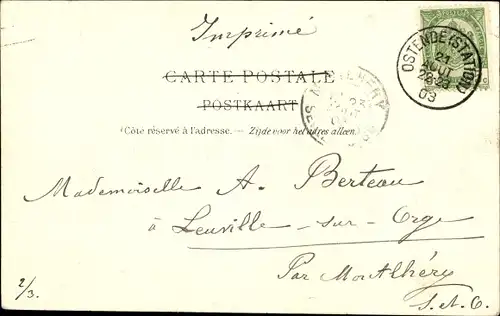 Imprimé
CARTE POSTALE
POSTKAART
(Côte réservé à l'adresse. — Zijde voor het adres alleen.)
OSTENDE (STATION)
21
AOUT
03
Mademoiselle A. Berteau
à Leuville-sur-Orge
Par Montlhéry
S.-et-O.
2/3.